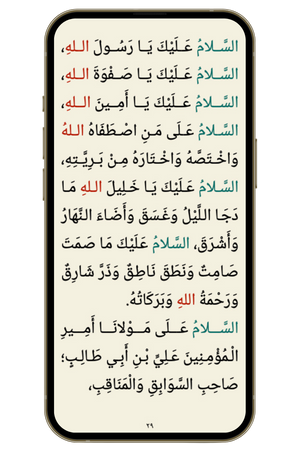 السَّلامُ عَلَيْكَ يَا رَسُولَ اللهِ،
السَّلامُ عَلَيْكَ يَا صَفْوَةَ اللهِ،
السَّلامُ عَلَيْكَ يَا أَمِينَ اللهِ،
السَّلامُ عَلَى مَنِ اصْطَفَاهُ اللهُ
وَاخْتَصَّهُ وَاخْتَارَهُ مِنْ بَرِيَّتِهِ،
السَّلامُ عَلَيْكَ يَا خَلِيلَ اللهِ مَا
دَجَا اللَّيْلُ وَغَسَقَ وَأَضَاءَ النَّهَارُ
وَأَشْرَقَ، السَّلامُ عَلَيْكَ مَا صَمَتَ
صَامِتٌ وَنَطَقَ نَاطِقٌ وَذَرَّ شَارِقٌ
وَرَحْمَةُ اللهِ وَبَرَكَاتُهُ.
السَّلامُ عَلَى مَوْلانَا أَمِيرِ
الْمُؤْمِنِينَ عَلِيِّ بْنِ أَبِي طَالِبٍ؛
صَاحِبِ السَّوَابِقِ وَالْمَنَاقِبِ،
٢٩